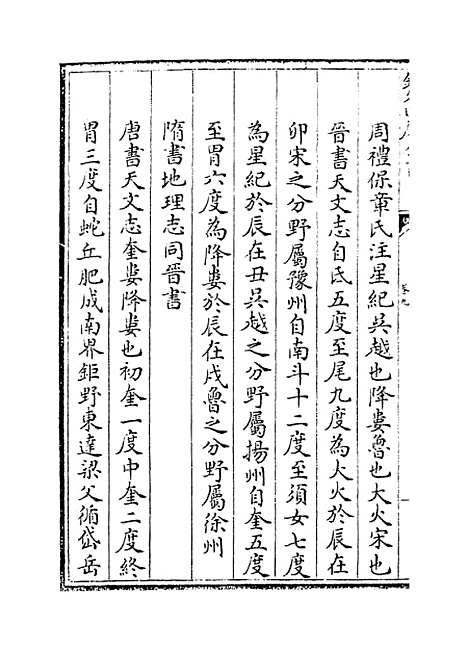 周禮保章氏注星紀吳越也降婁魯也大火宋也
晉書天文志自氐五度至尾九度為大火於辰在
卯宋之分野屬豫州自南斗十二度至須女七度
為星紀於辰在丑吳越之分野屬揚州自奎五度
至胃六度為降婁於辰在戌魯之分野屬徐州
隋書地理志同晉書
唐書天文志奎婁降婁也初奎一度中奎二度終
胃三度自蛇丘肥成南界鉅野東達梁父循岱岳